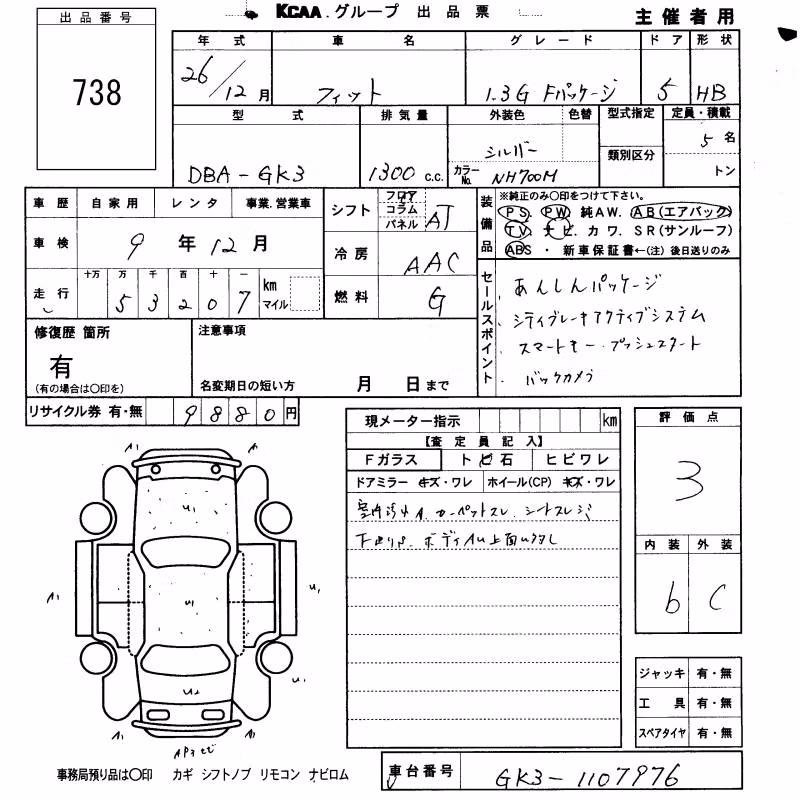 KCAA.グループ 出品票
主催者用
出品番号
738
年式 車名 グレード ドア 形状
26/12月 フィット 1.3G Fパッケージ 5 HB
型式 排気量 外装色 色替 型式指定 定員・積載
DBA-GK3 1300 c.c. シルバー 類別区分 5名
カラーNo. NH700M トン
車歴 自家用 レンタ 事業.営業車
車検 9年12月
走行 十万 万 千 百 十 一 km マイル
5 3 2 0 7
シフト フロア コラム パネル AT
冷房 AAC
燃料 G
装備品 ※純正のみ〇印をつけて下さい。
PS. PW. 純AW. AB(エアバック)
TV. ナビ. カワ. SR(サンルーフ)
ABS ・ 新車保証書←(注)後日送りのみ
セールスポイント
あんしんパッケージ
シティブレーキアクティブシステム
スマートキー・プッシュスタート
バックカメラ
修復歴 箇所
有
(有の場合は〇印を)
注意事項
名変期日の短い方 月 日まで
リサイクル券 有・無 9880円
現メーター指示 km
【査定員記入】
Fガラス トビ石 ヒビワレ
ドアミラー キズ・ワレ ホイール(CP) キズ・ワレ
カーペットスレ シートスレ
評価点
3
内装 外装
b C
A1 A1
U1
A1 U1 U1
U2 U1
A1 A1
ジャッキ 有・無
工具 有・無
スペアタイヤ 有・無
事務局預り品は〇印 カギ シフトノブ リモコン ナビロム
車台番号 GK3-1107976